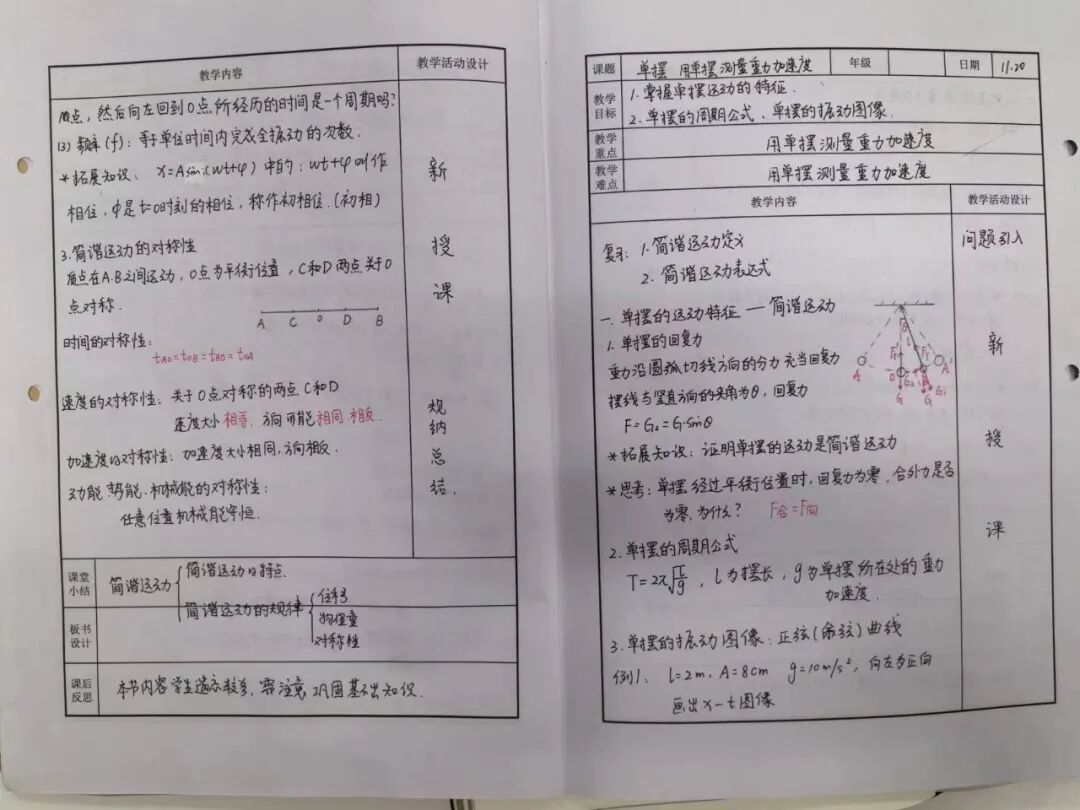 教学内容
教学活动设计
点，然后向左回到O点所经历的时间是一个周期吗？
(3) 频率(f)：等于单位时间内完成全振动的次数.
*拓展知识：x=Asin(wt+φ)中的：wt+φ叫作
相位，φ是t=0时刻的相位，称作初相位.(初相)
3.简谐运动的对称性
质点在A.B之间运动，O点为平衡位置，C和D两点关于O
点对称.
A C O D B
时间的对称性：
tAO=tOB=tBO=tOA
速度的对称性：关于O点对称的两点C和D
速度大小相等，方向可能相同.相反.
加速度的对称性：加速度大小相同，方向相反.
动能.势能.机械能的对称性：
任意位置机械能守恒.
新
授
课
规
纳
总
结.
课堂
小结
简谐运动
简谐运动的特点.
简谐运动的规律
位移
物理量
对称性
板书
设计
课后
反思
本节内容学生遗忘较多，需注意巩固基础知识.
课题
单摆 用单摆测量重力加速度
年级
日期
11.20
教学
目标
1.掌握单摆运动的特征.
2.单摆的周期公式、单摆的振动图像.
教学
重点
用单摆测量重力加速度
教学
难点
用单摆测量重力加速度
教学内容
教学活动设计
复习：1.简谐运动定义
2.简谐运动表达式
问题引入
一.单摆的运动特征——简谐运动
1.单摆的回复力
重力沿圆弧切线方向的分力充当回复力
摆线与竖直方向的夹角为θ，回复力
F=G₂=G·sinθ
*拓展知识：证明单摆的运动是简谐运动
*思考：单摆经过平衡位置时，回复力为零，合外力是否
为零，为什么？ F合=F向
2.单摆的周期公式
T=2π√l/g，l为摆长，g为单摆所在处的重力
加速度.
3.单摆的振动图像：正弦(余弦)曲线
例1. l=2m，A=8cm g=10m/s²，向右为正向
画出x-t图像
新
授
课